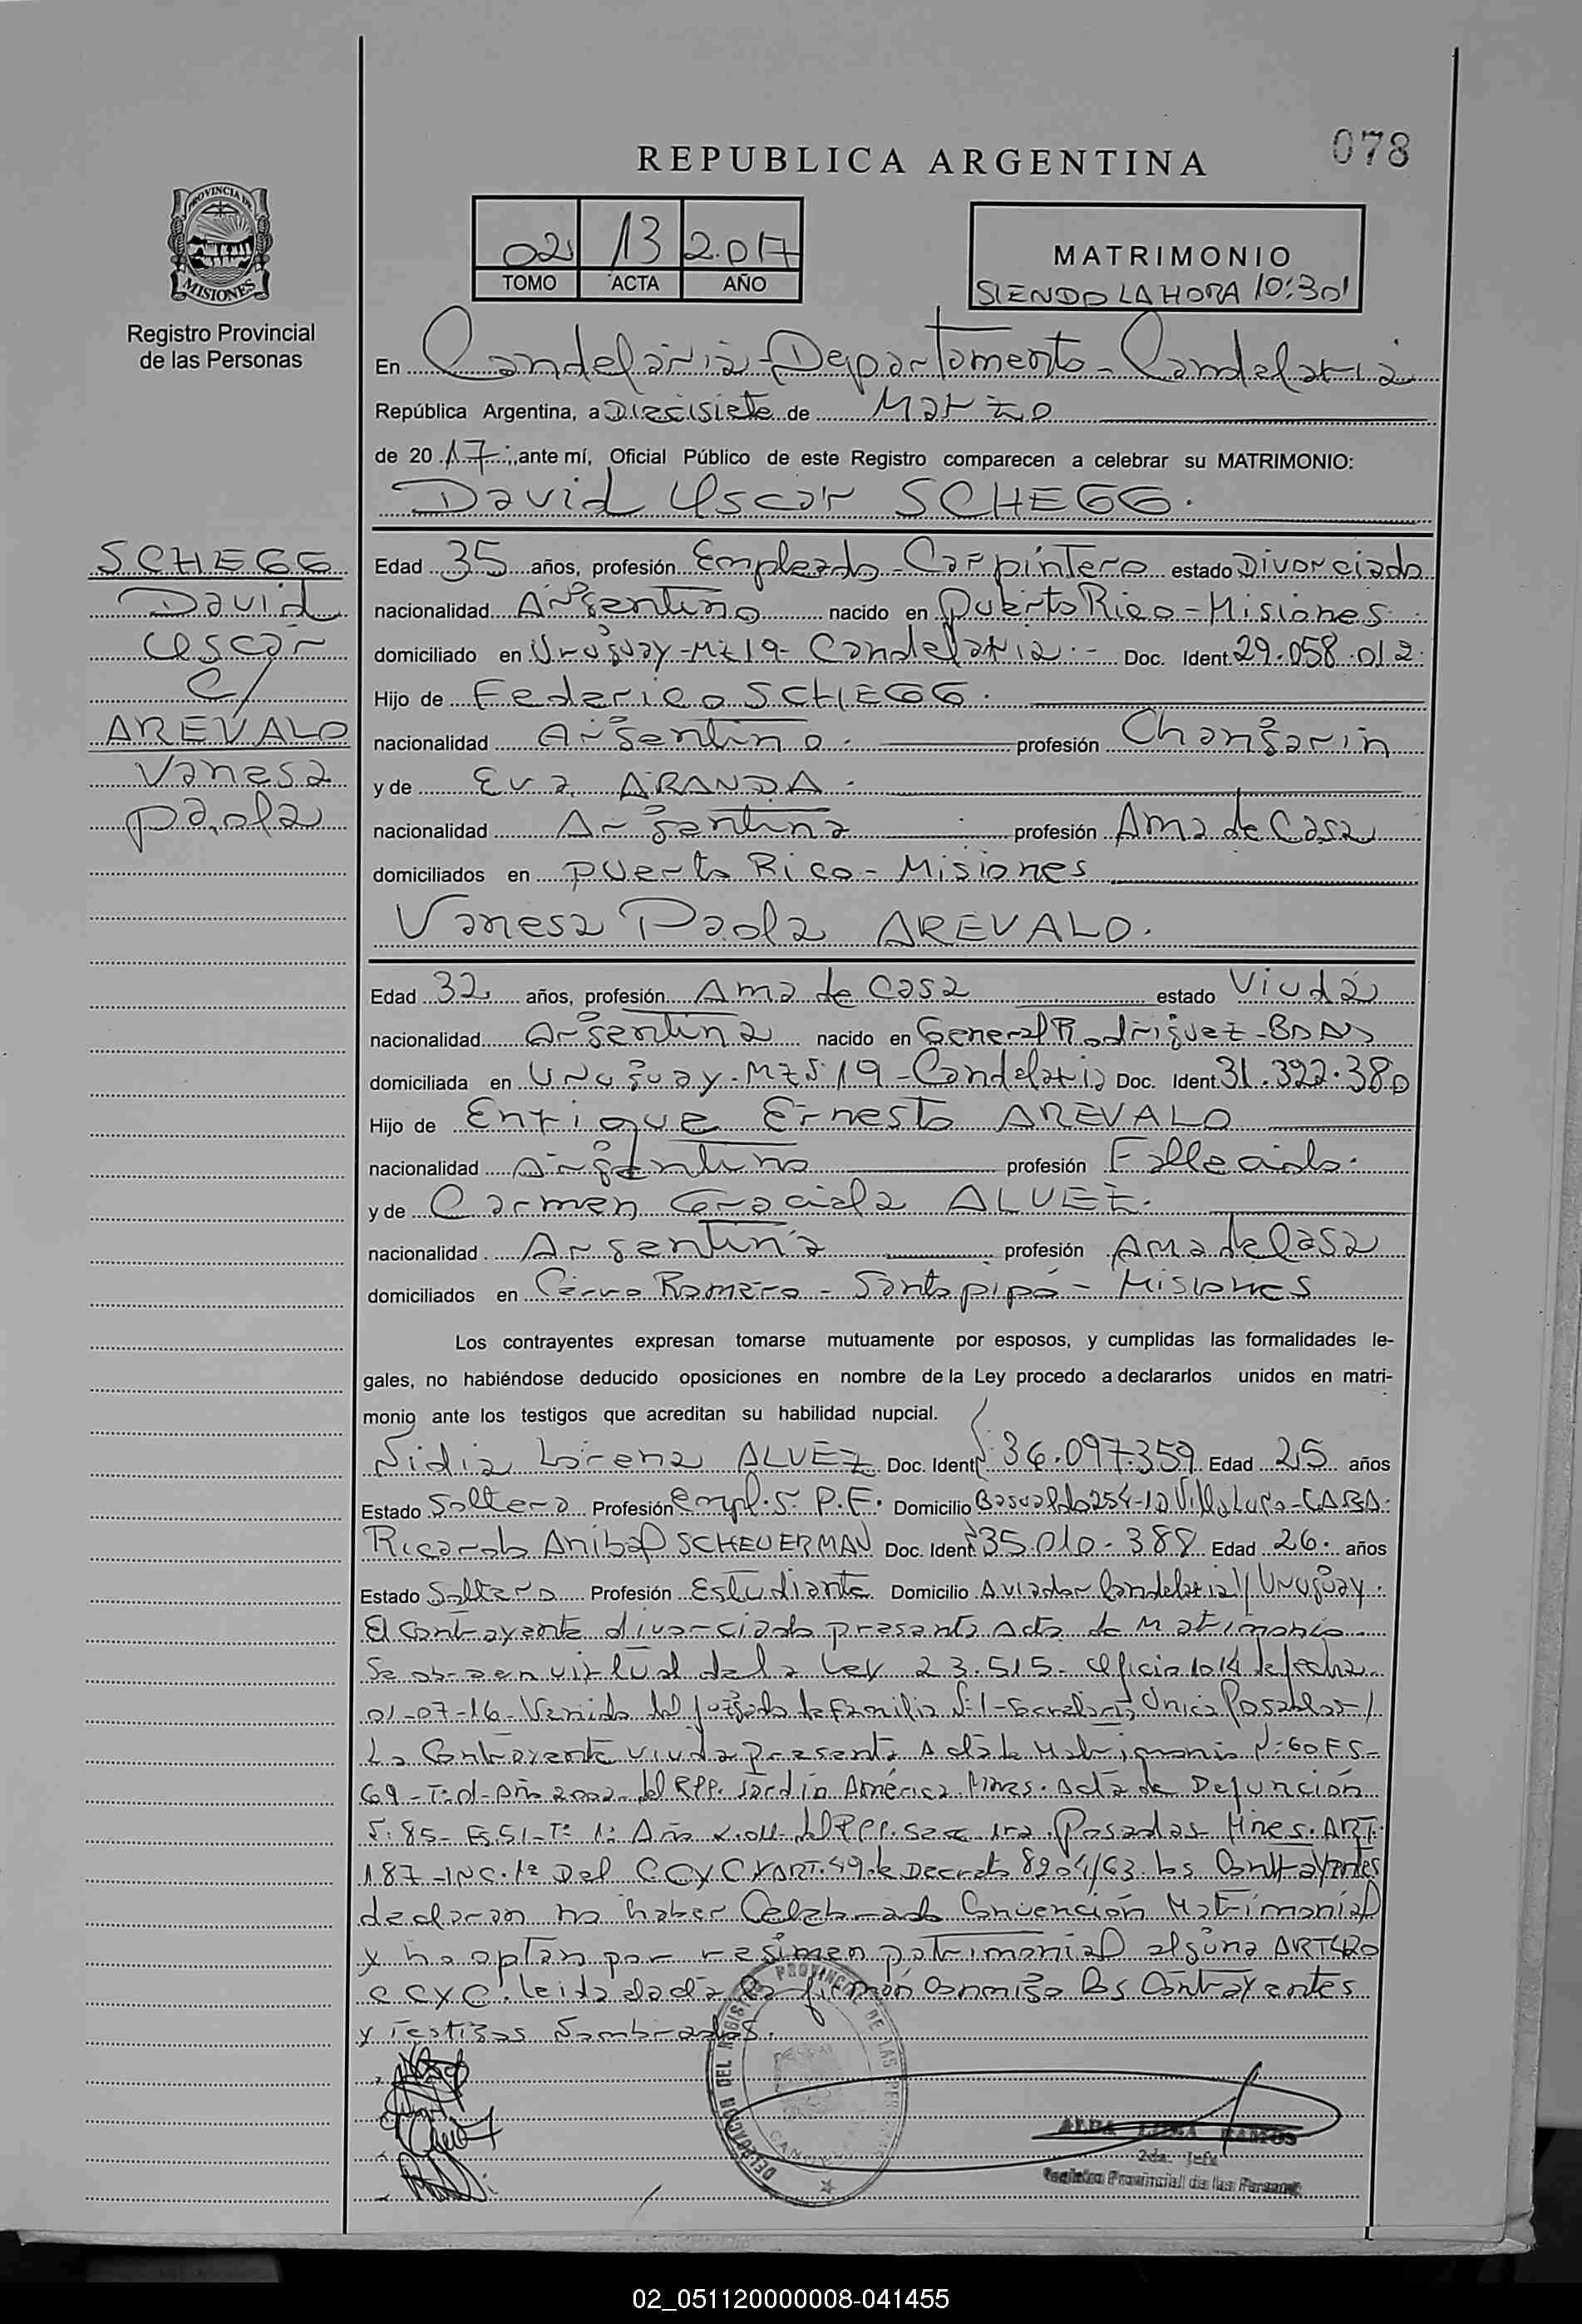 078
REPUBLICA ARGENTINA
PROVINCIA DE
MISIONES
Registro Provincial
de las Personas
02 13 2.017
TOMO ACTA AÑO
MATRIMONIO
SIENDO LA HORA 10:30'
En Candelaria - Departamento - Candelaria
República Argentina, a Diecisiete de Marzo
de 20 17 ; ante mí, Oficial Público de este Registro comparecen a celebrar su MATRIMONIO:
David Oscar SCHEGG.
SCHEGG
David
Oscar
C/
AREVALO
Vanesa
Paola
Edad 35 años, profesión Empleado - Carpintero estado Divorciado
nacionalidad Argentino nacido en Puerto Rico - Misiones
domiciliado en Uruguay - Mz 19 - Candelaria - Doc. Ident. 29.058.012
Hijo de Federico SCHEGG.
nacionalidad Argentino. profesión Changarin
y de Eva ARANDA.
nacionalidad Argentina profesión Ama de Casa
domiciliados en Puerto Rico - Misiones
Vanesa Paola AREVALO.
Edad 32 años, profesión Ama de Casa estado Viuda
nacionalidad Argentina nacido en General Rodriguez -
domiciliada en Uruguay - 19 - Candelaria Doc. Ident. 31.392.380
Hijo de Enrique Ernesto AREVALO
nacionalidad Argentino profesión Fallecido.
y de Carmen Graciela ALVEZ.
nacionalidad Argentina profesión Ama de Casa
domiciliados en Romero - Santo Pipó - Misiones
Los contrayentes expresan tomarse mutuamente por esposos, y cumplidas las formalidades le-
gales, no habiéndose deducido oposiciones en nombre de la Ley procedo a declararlos unidos en matri-
monio ante los testigos que acreditan su habilidad nupcial.
Nidia Lorena ALVEZ Doc. Ident. 36.097.359 Edad 25 años
Estado Soltera Profesión Empl. S. P.F. Domicilio 254 - - CABA.
Ricardo Anibal SCHEUERMAN Doc. Ident. 35.010.388 Edad 26. años
Estado Soltero Profesión Estudiante Domicilio Aviador Candelaria y Uruguay.
El Contrayente divorciado presenta Acta de Matrimonio
en virtud de la Ley 23.515 - Oficio 1014 de fecha
01-07-16 - Venido del Juzgado de Familia Nº 1 - Secretaria Única Posadas - /
La Contrayente viuda presenta Acta de Matrimonio Nº 60 FS-
69 - Año 2002 del RPP. Jardín América Mnes. Acta de Defunción
85 - Fs. 51 - Tº 1º Año del RPP. Secc 1ra Posadas Mnes. ART.
187 - INC. 1º Del CCYC Y ART. 49 de Decreto 8204/63. los Contrayentes
declaran no haber Celebrado Convención Matrimonial
y no optan por regimen patrimonial alguno ART 420
CCYC. leida el acta la firman conmigo los Contrayentes
y Testigos Nombrados.
DELEGACION DEL REGISTRO PROVINCIAL DE LAS PERSONAS
2da. Jefa
Registro Provincial de las Personas
02_051120000008-041455